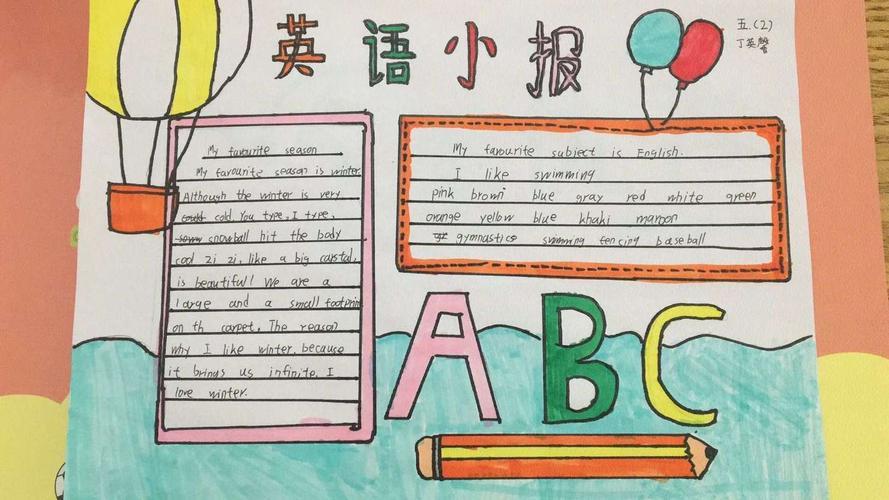 英语小报
五.(2)
丁英馨
My favourite season
My favourite season is winter.
Although the winter is very
cold You type, I type,
snowball hit the body
cool zi zi, like a big carstal,
is beautiful! We are a
large and a small footprin
on th carpet. The reason
why I like winter. because
it brings us infinite. I
love winter.
My favourite subject is English.
I like swimming
pink brown blue gray red white green
orange yellow blue khaki maroon
gymnastics swimming fencing baseball
ABC